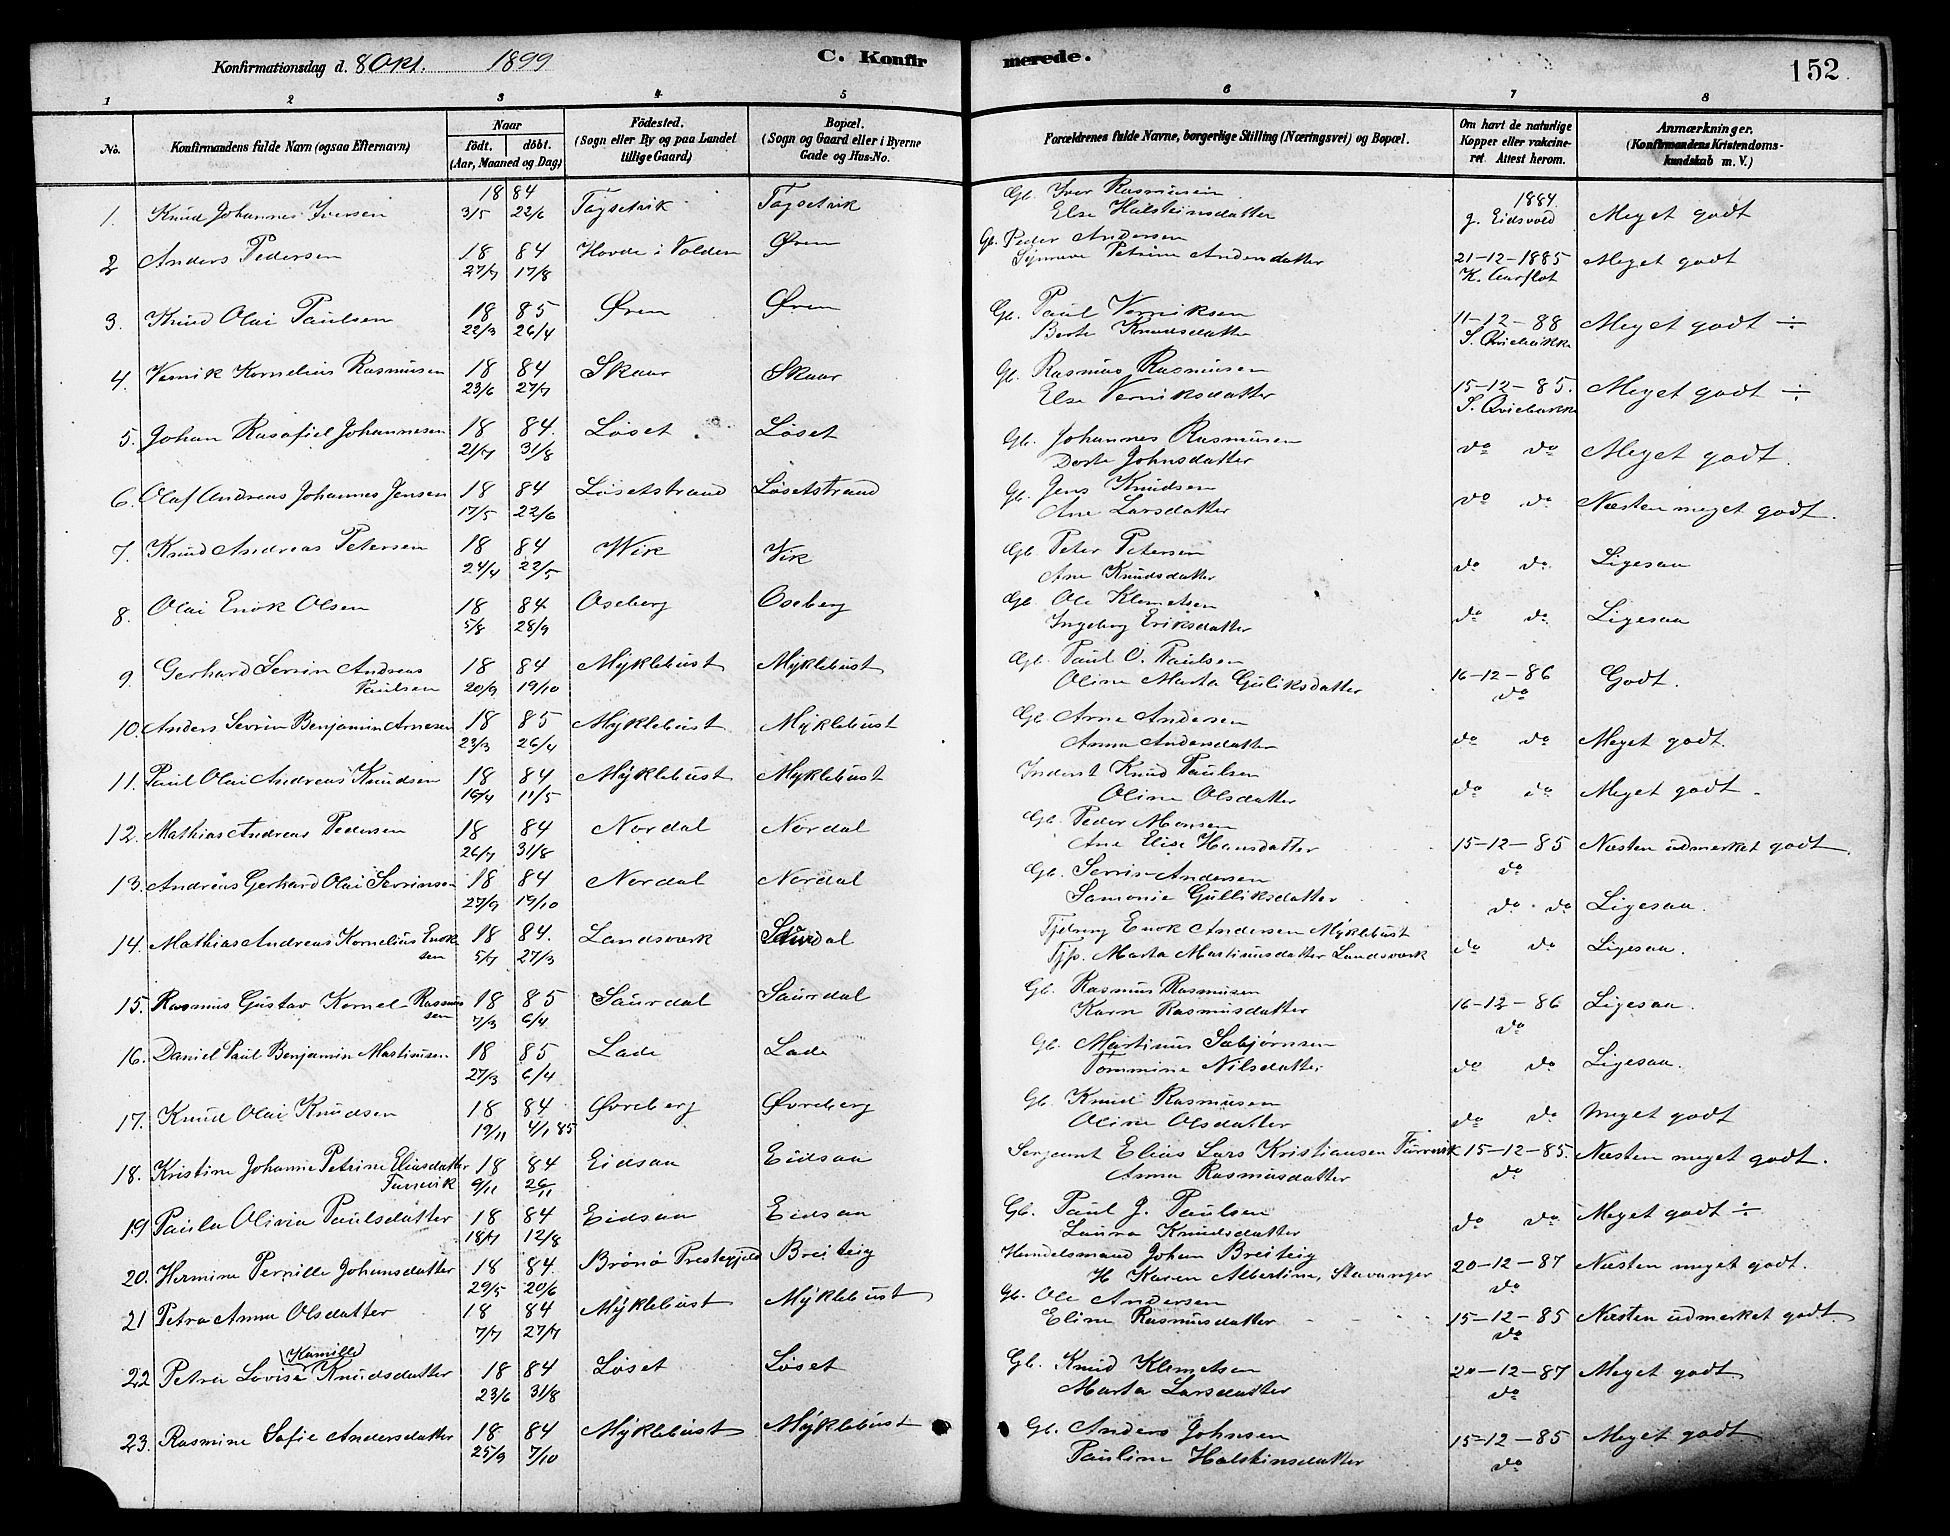 Konfirmationsdag d. 8 Okt. 1899 C. Konfirmerede. 152
1 2 3 4 5 6 7 8
No. Konfirmandens fulde Navn (ogsaa Efternavn) Naar født. døbt. (Aar, Maaned og Dag) Fødested. (Sogn eller By og paa Landet tillige Gaard) Bopæl. (Sogn og Gaard eller i Byerne Gade og Hus-No. Forældrenes fulde Navne, borgerlige Stilling (Næringsvei) og Bopæl. Om havt de naturlige Kopper eller vakcineret. Attest herom. Anmærkninger. (Konfirmandens Kristendomskundskab m. V.)
1. Knud Johannes Iversen 18 84 3/5 22/6 Tagsetvik Tagsetvik Gb. Iver Rasmusen Else Halsteinsdatter 1884. J. Eidsvold Meget godt
2 Anders Pedersen 18 84 27/7 17/8 Hovde i Volden Øren Gb. Peder Andersen Synneve Petrine Andersdatter 21-12-1885 K. Aarflot Meget godt
3. Knud Olai Paulsen 18 85 22/3 26/4 Øren Øren Gb. Paul Verniksen Berte Knudsdatter 11-12-88 S. Qviebakke Meget godt ÷
4. Vernik Kornelius Rasmusen 18 84 23/6 27/7 Skaar Skaar Gb. Rasmus Rasmusen Else Verniksdatter 15-12-85. S. Qviebakke Meget godt ÷
5. Johan Rasafiel Johannesen 18 84. 21/7 31/8 Løset Løset Gb. Johannes Rasmusen Dorte Johnsdatter do do Meget godt.
6. Olaf Andreas Johannes Jensen 18 84 17/5 22/6 Løsetstrand Løsetstrand Gb. Jens Knudsen Ane Larsdatter do do Næsten meget godt.
7. Knud Andreas Petersen 18 84 24/4 22/5 Wik Vik Gb. Peter Petersen Ane Knudsdatter do do Ligesaa
8. Olai Enok Olsen 18 84. 5/8 28/9 Oseberg Oseberg Gb. Ole Klemetsen Ingeborg Eriksdatter do do Ligesaa
9. Gerhard Servin Andreas Paulsen 18 84 20/9 19/10 Myklebust Myklebust Gb. Paul O. Paulsen Oline Marta Guliksdatter 16-12-86 do Godt.
10. Anders Sevrin Benjamin Arnesen 18 85 23/3 26/4 Myklebust Myklebust Gb. Arne Andersen Anna Andersdatter do do Meget godt.
11. Paul Olai Andreas Knudsen 18 84 16/4 11/5 Myklebust Myklebust Inderst Knud Paulsen Oline Olsdatter do do Meget godt.
12. Mathias Andreas Pedersen 18 84 26/7 31/8 Nordal Nordal Gb. Peder Monsen Ane Elise Hansdatter 15-12-85 do Næsten udmerket godt.
13. Andreas Gerhard Olai Servinsen 18 84 27/9 19/10 Nordal Nordal Gb. Servin Andersen Samonie Gulliksdatter do do Ligesaa.
14. Mathias Andreas Kornelius Enoksen 18 84. 5/7 27/3 Landsverk Saurdal Tjdreng Enok Andersen Myklebust Tjp. Marta Martinusdatter Landsværk do do Ligesaa.
15. Rasmus Gustav Kornel Rasmussen 18 85 7/3 6/4 Saurdal Saurdal Gb. Rasmus Rasmusen Karn Rasmusdatter 16-12-86 do Ligesaa.
16. Daniel Paul Benjamin Martinusen 18 85 27/3 6/4 Lade Lade Gb. Martinus Sæbjørnsen Tommine Nilsdatter do do Ligesaa.
17. Knud Olai Knudsen 18 84 19/11 4/1 85 Øvreberg Øvreberg Gb. Knud Rasmusen Oline Olsdatter do do Meget godt
18. Kristine Johanne Petrine Eliasdatter Furnevik 18 84 9/11 26/11 Eidsaa Eidsaa Sergeant Elias Lars Kristiansen Furnevik Anna Rasmusdatter 15-12-85. do Næsten meget godt.
19 Paula Olivia Paulsdatter 18 84 18/7 12/8 Eidsaa Eidsaa Gb. Paul J. Paulsen Laura Knudsdatter do do Meget godt ÷
20. Hermine Pernille Johansdatter 18 84. 29/5 20/6 Brønø Prestegjeld Breiteig Handelsmand Johan Breiteig H Karen Albertine, Stavanger 20-12-87 do Næsten meget godt.
21 Petra Anna Olsdatter 18 84 7/7 27/7 Myklebust Myklebust Gb. Ole Andersen Eline Rasmusdatter 15-12-85 do Næsten udmerket godt
22 Petra Lovise (Kamille) Knudsdatter 18 84 23/6 31/8 Løset Løset Gb. Knud Klemetsen Marta Larsdatter 20-12-87 do Meget godt
23. Rasmine Sofie Andersdatter 18 84 25/9 7/10 Myklebust Myklebust Gb. Anders Johnsen Pauline Halstinsdatter 15-12-85 do Meget godt